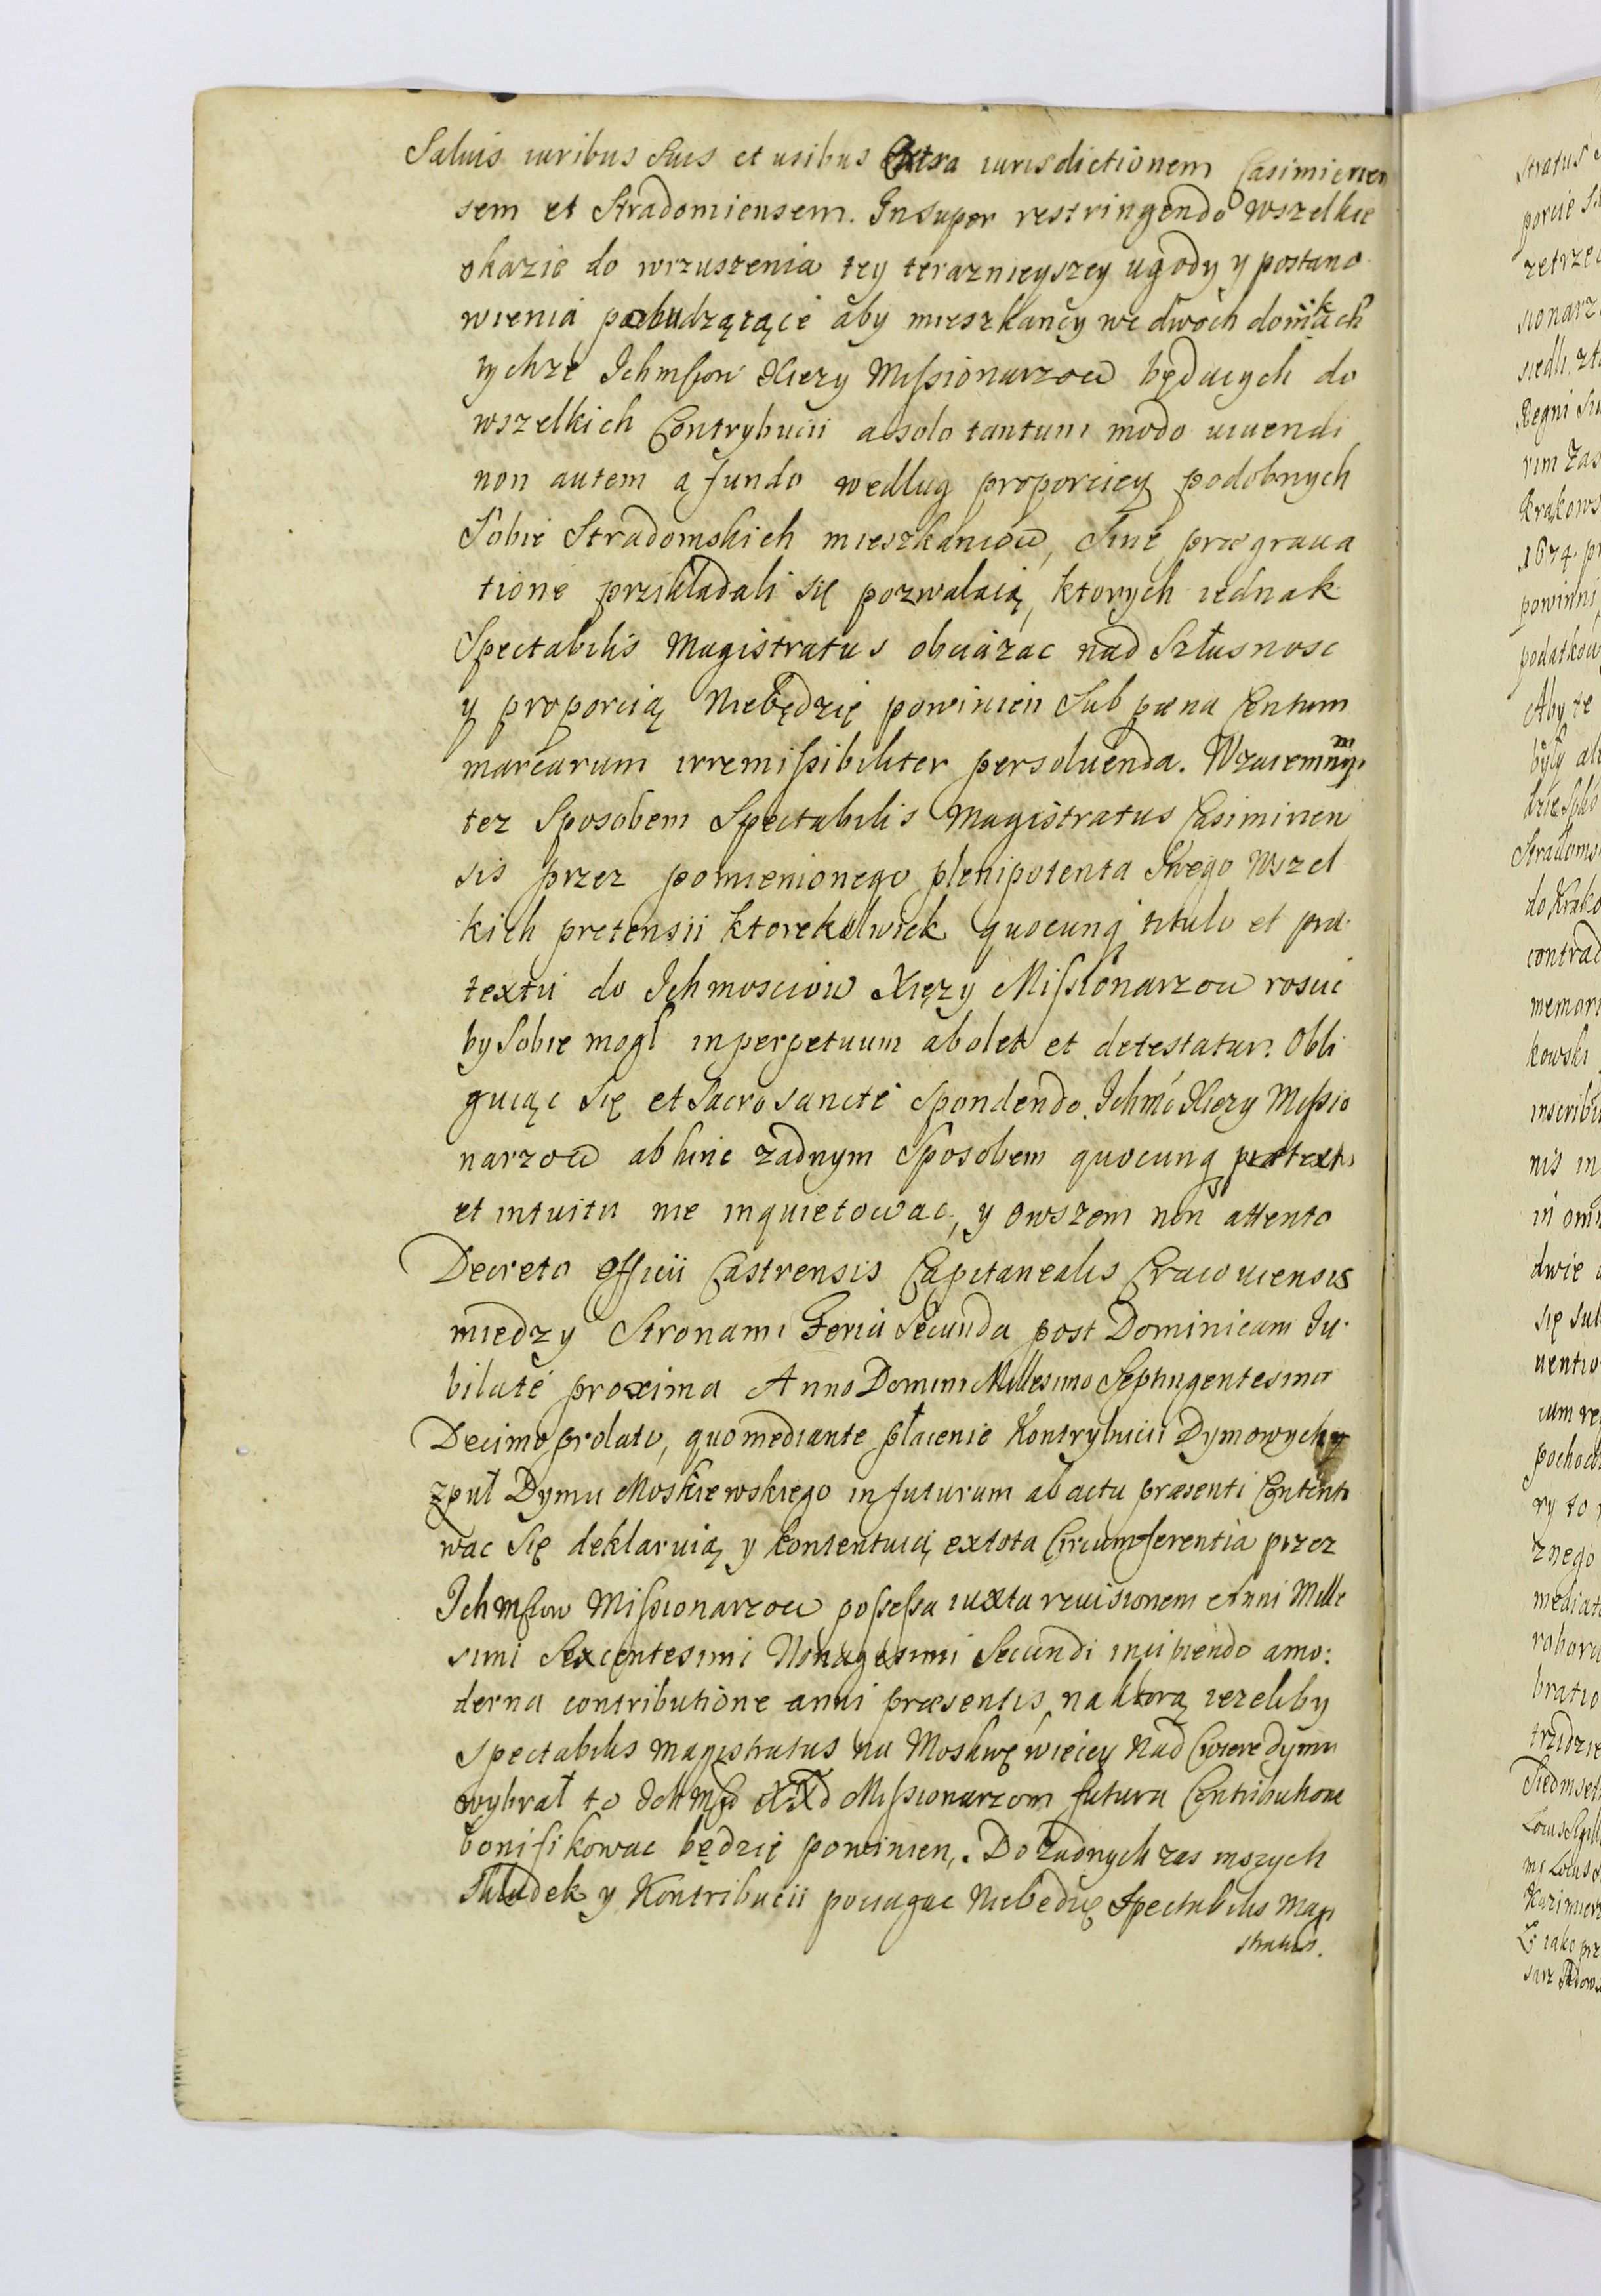 Saluis iuribus Suis et usibus Extra iurisdictionem Casimirien
sem et Stradomiensem. Insuper restringendo wszelkie
okazie do wzruszenia tey teraznieyszey ugody y postano
wienia pobudzaiącie aby mieszkancy we dwoch domkach
tychze Ichmsciow Xiezy Missionarzow będacych do
wszelkich Contrybucii a solo tantum modo uiuendi
non autem a fundo według proporciey podobnych
Sobie Stradomskich mieszkancow, Sine praegraua
tione przikładali się pozwalaią, ktorych iednak
Spectabilis Magistratus obciązac nad Szłusnosc
y proporcią Niebędzię powinien Sub paena Centum
marcarum irremissibiliter persoluenda. Wzaiemnym
tez Sposobem Spectabilis Magistratus Casimirien
sis przez pomienionego plenipotenta Swego Wszel
kich pretensii ktorekolwiek quocunq titulo et prae
textu do Ichmosciow Xięzy Missionarzow roscic
by Sobie mogł in perpetuum abolet et detestatur. Obli
guiąc Się et Sacrosancte Spondendo Ichmc Xiezy Missio
narzow abhinc zadnym Sposobem quocunq praetextu
et intuitu nie inquietowac, y owszem non attento
Decreto Officii Castrensis Capitanealis Cracouiensis
miedzy Stronami Feria Secunda post Dominicam Iu
bilate proxima Anno Domini Millesimo Septingentesimo
Decimo prolato, quo mediante płacenie Kontrybucii Dymowych
zpuł Dymu Moskiewskiego in futurum ab actu praesenti Contento
wac Się deklaruią y kontentuią ex tota Circumferentia przez
Ichmsciow Missionarzow possessa iuxta reuisionem Anni Mille
simi Sexcentesimi Nonagesimi Secundi incipiendo a mo:
derna contributione anni praesentis, na ktorą iezeliby
Spectabilis Magistratus na Moskwę wiecey Nad Cwierc dymu
wybrał to Ichmsc XX Missionarzom futura Contributione
bonifikowac będzię powinien. Do zadnych zas inszych
Składek y Kontribucii pociagac Niebedzię Spectabilis Magi
stratus.